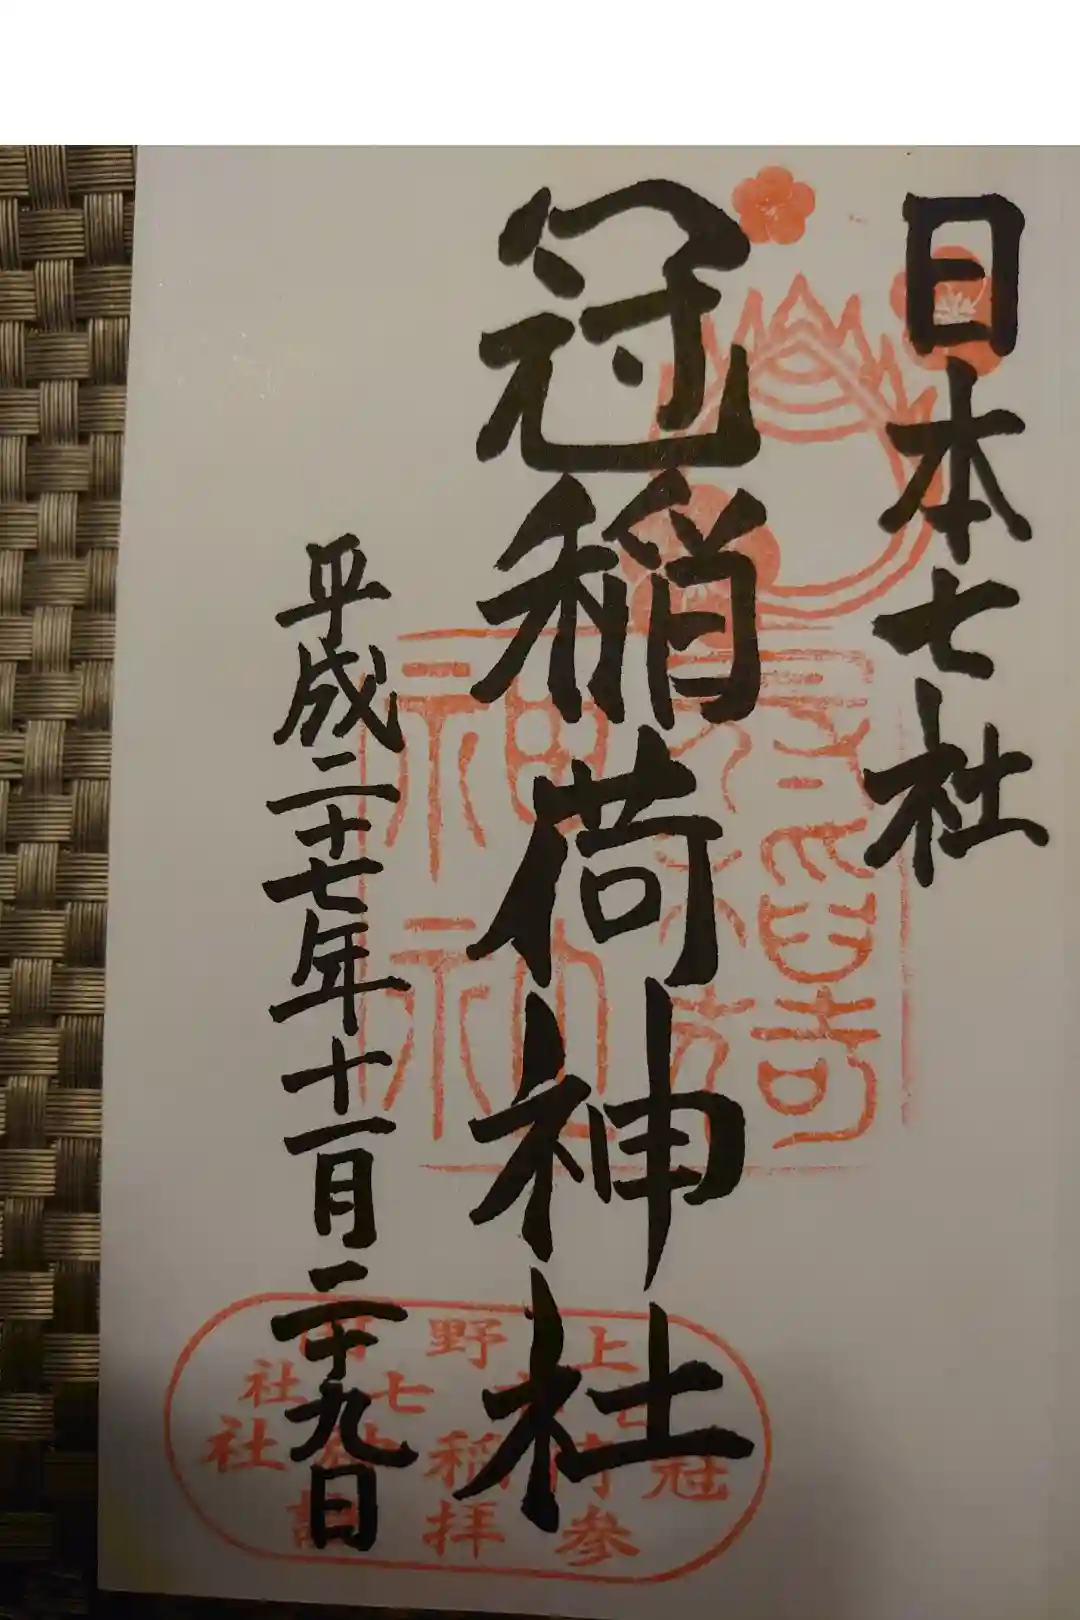 日本七社
冠稲荷神社
平成二十七年十一月二十九日
冠稲荷
神社
上野
七社
冠稲
社
参拝